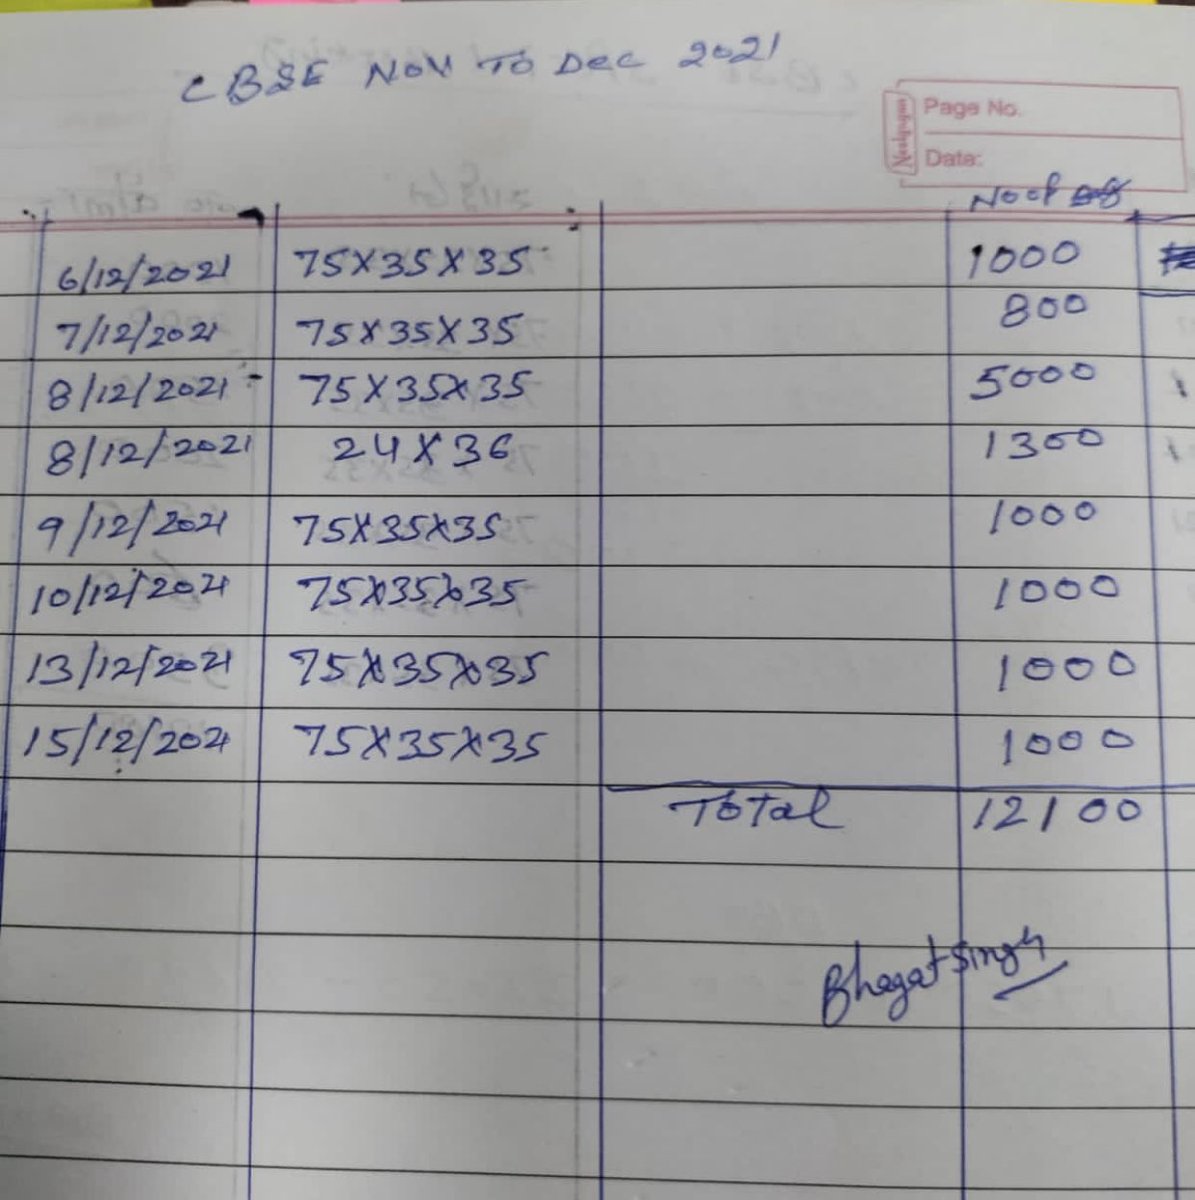 CBSE Nov To Dec 2021
Neelgagan
Page No.
Date:
No of
6/12/2021 75X35X35 1000
7/12/2021 75X35X35 800
8/12/2021 75X35X35 5000
8/12/2021 24X36 1300
9/12/2021 75X35X35 1000
10/12/2021 75X35X35 1000
13/12/2021 75X35X35 1000
15/12/2021 75X35X35 1000
Total 12100
Bhagat Singh